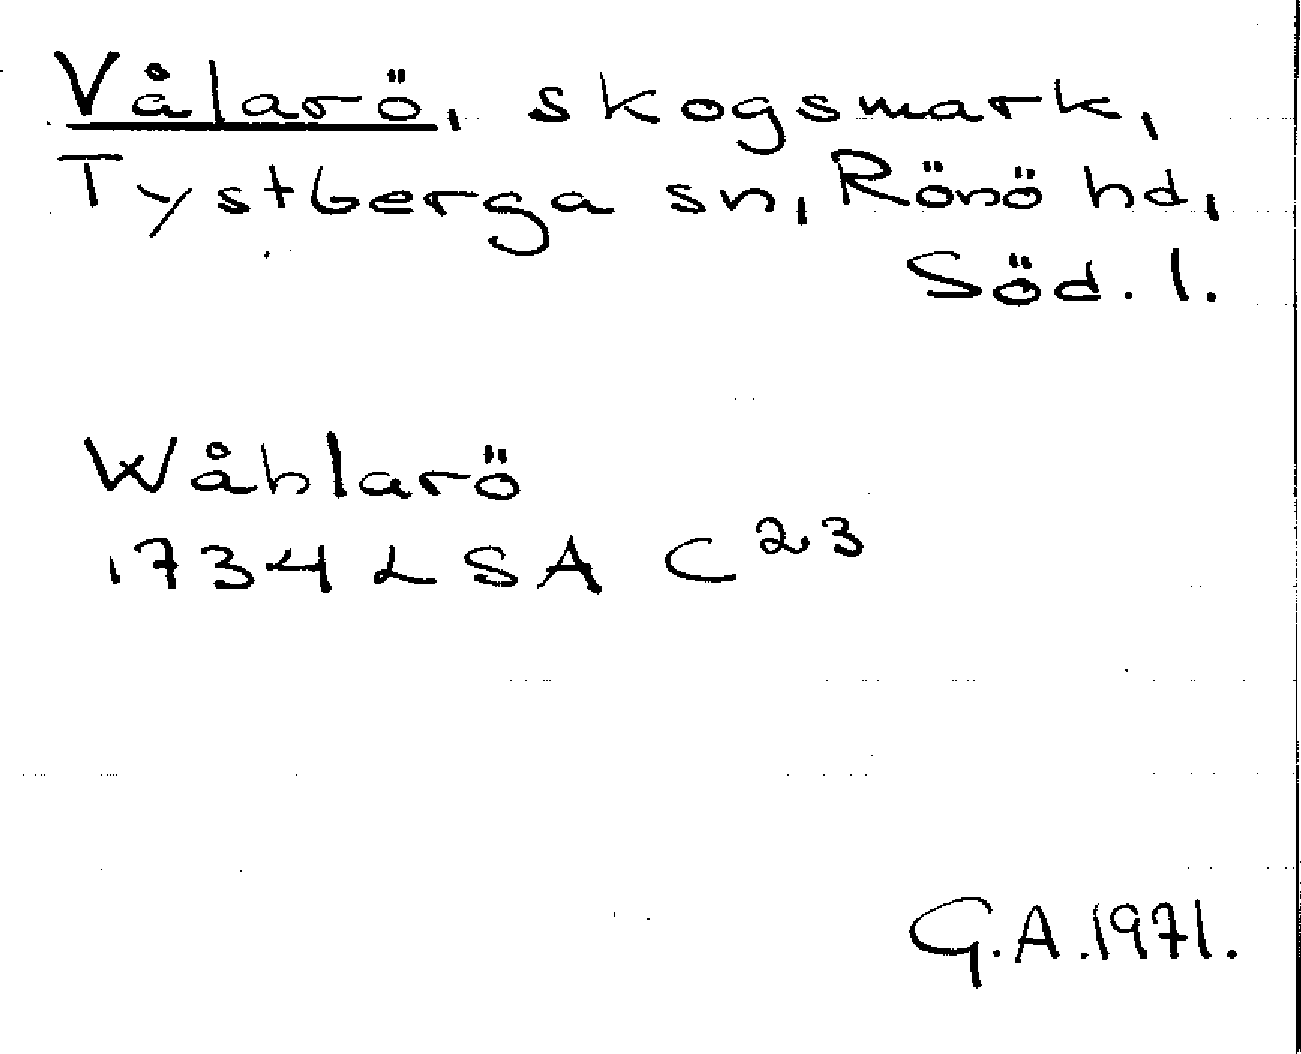 Vålarö, skogsmark,
Tystberga sn, Rönö hd,
Söd. l.
Wåhlarö
1734 LSA C 23
G.A. 1971.